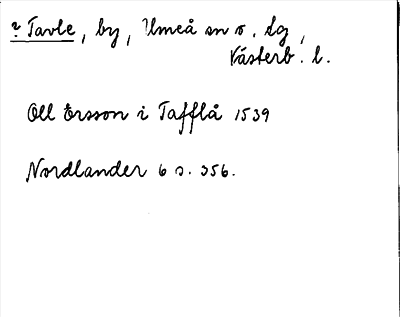 ? Tavle, by, Umeå sn o. lg,
Västerb. l.
Oll Ersson i Tafflå 1539
Nordlander 6 s. 356.